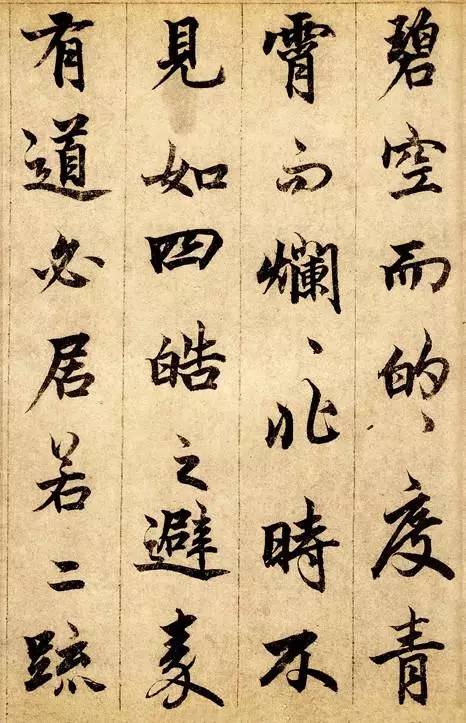 碧空而的、度青
霄而爛、非時不
見如四皓之避秦
有道必居若二䟽